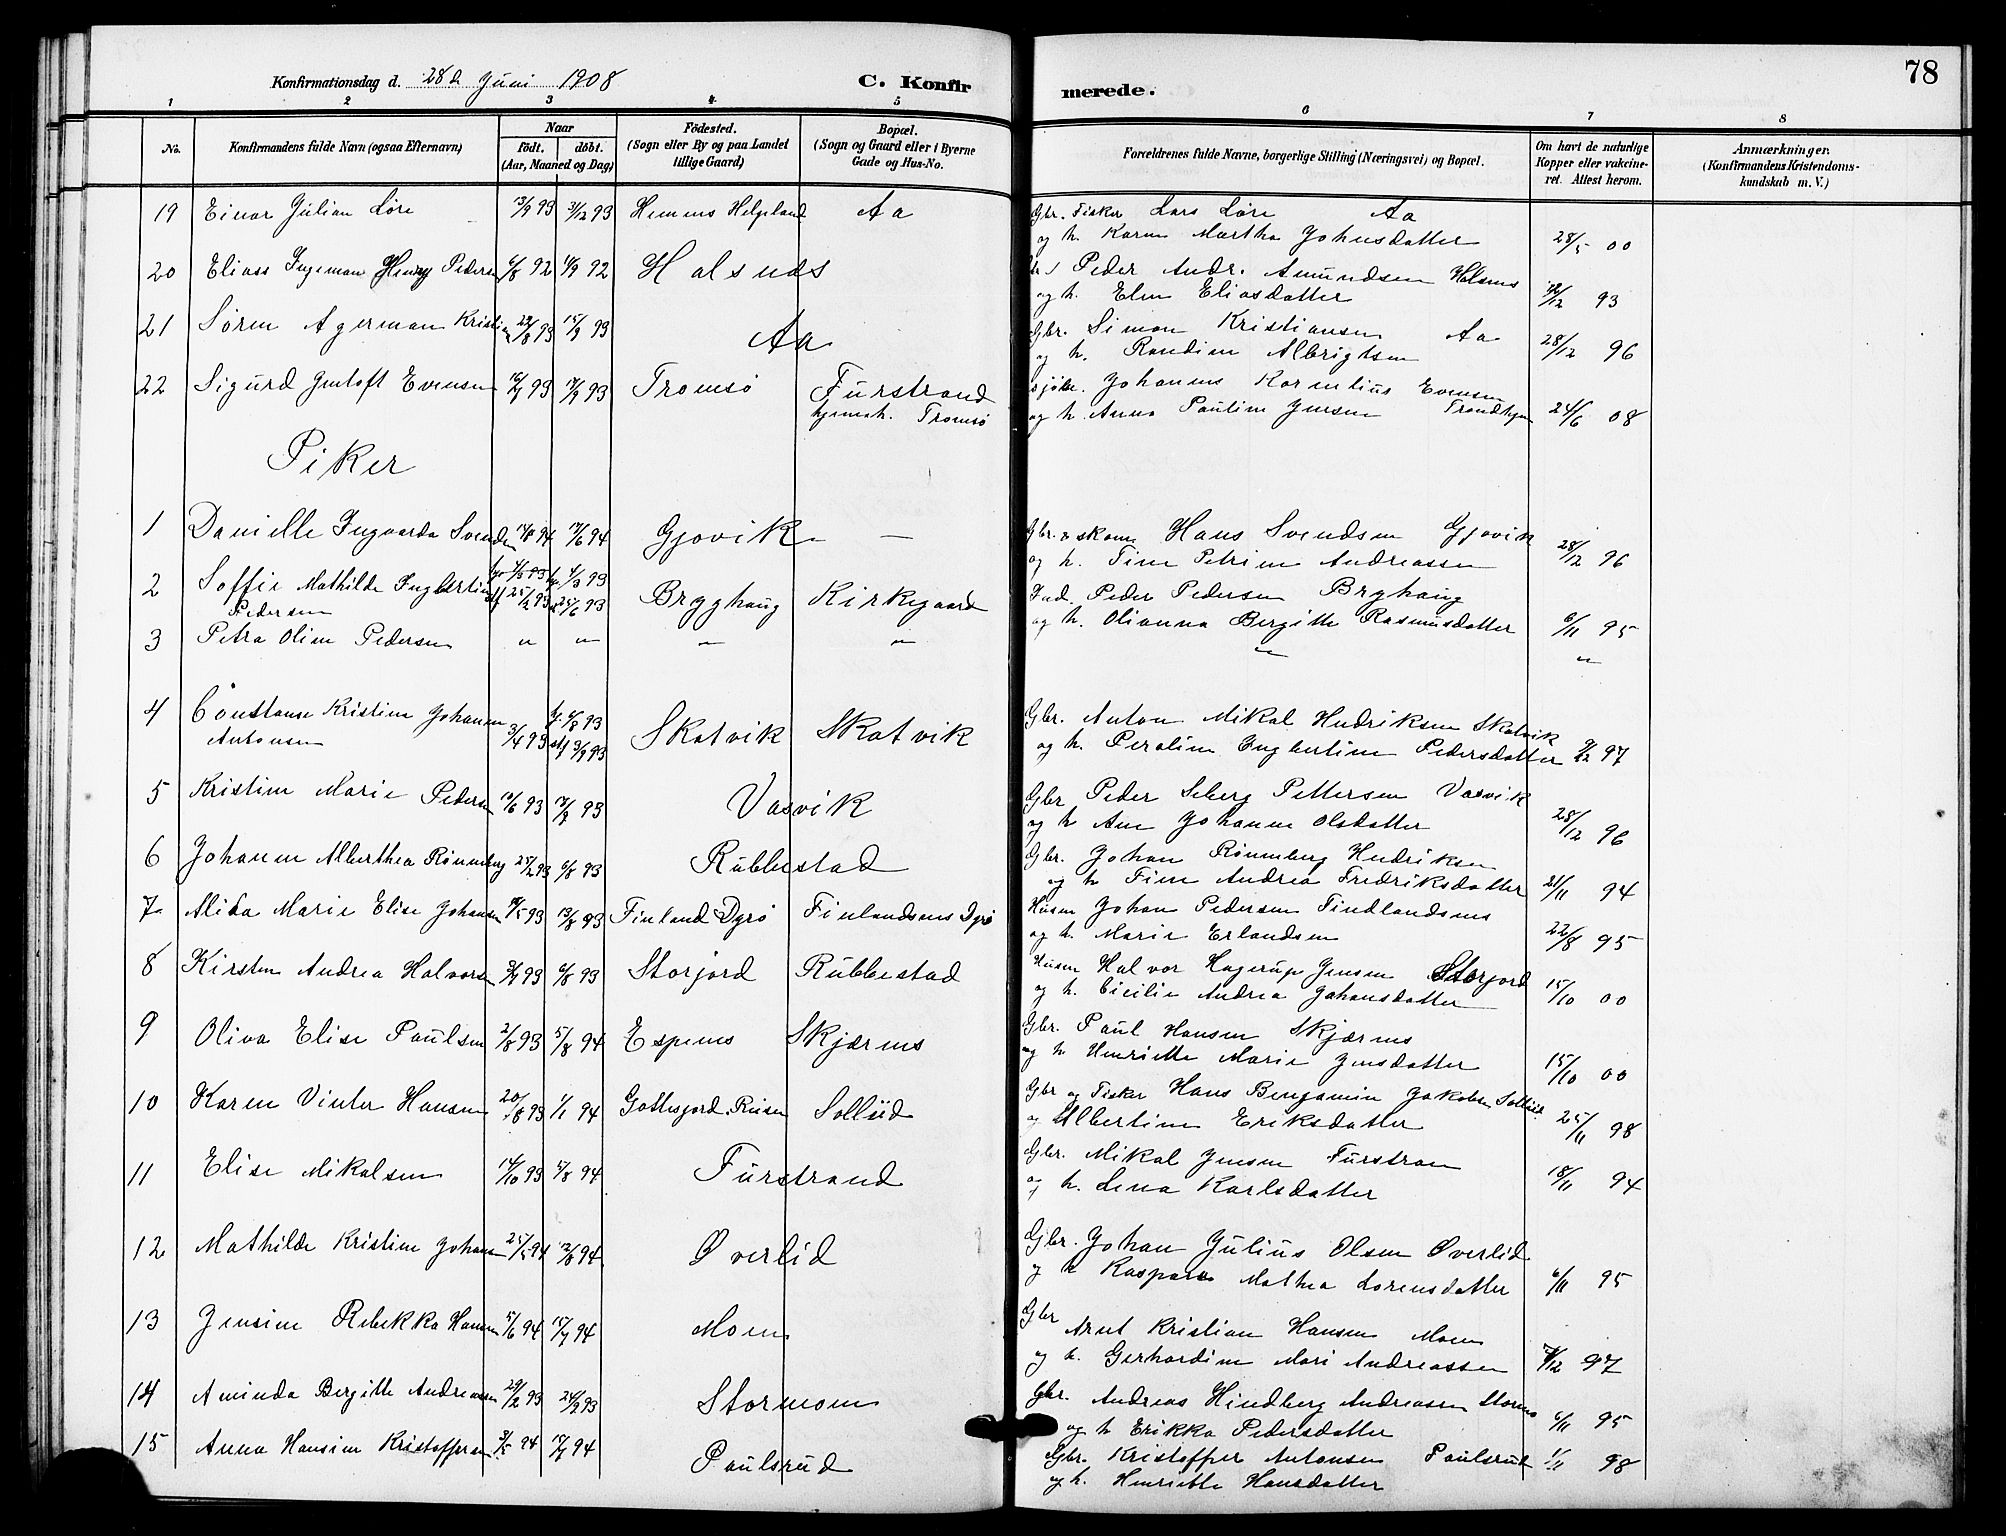 78
Konfirmationsdag d. 28d Juni 1908 C. Konfirmerede.
1 2 3 4 5 6 7 8
No.
Konfirmandens fulde Navn (ogsaa Efternavn)
Naar
født. døbt.
(Aar, Maaned og Dag)
Födested.
(Sogn eller By og paa Landet
tillige Gaard)
Bopæl.
(Sogn og Gaard eller i Byerne
Gade og Hus-No.
Forældrenes fulde Navne, borgerlige Stilling (Næringsvei) og Bopæl.
Om havt de naturlige
Kopper eller vakcine-
ret. Attest herom.
Anmærkninger.
(Konfirmandens Kristendoms-
kundskab m. V.)
19 Einar Julian Løre 13/9 93 3/12 93 Hemnes Helgeland Aa Gbr. Fisker Lars Løre Aa
og h. Karen Martha Johnsdatter 28/5 00
20 Elias Ingeman Henry Pedersen 6/8 92 11/9 92 Halsnes Peder Andr. Amundsen Halsnes
og h. Elen Eliasdatter 93
21 Søren Agerman Kristian 22/8 93 15/9 93 Aa Gbr. Simon Kristiansen Aa
og h. Randine Albrigtsen 28/12 96
22 Sigurd Gustoft Evensen 16/7 93 17/9 93 Tromsö Furstrand Johannes Kornelius Evensen
hjemh. Tromsö og h. Anna Pauline Jensen Trondhjem 24/6 08
Piker
1 Danielle Ingvarda Svendsen 94 17/6 94 Gjøvik — Gbr. & skom. Hans Svendsen Gjøvik
og h. Tine Petrine Andreassen 28/12 96
2 Soffie Mathilde Ingbertine 25/2 93 4/3 93 Bryghaug Kirkegaard Ind. Peder Pedersen Bryhaug
Pedersen 25/6 93 og h. Olianna Bergitte Rasmusdatter 6/11 95
3 Petra Oline Pedersen " " " " " "
4 Constanse Kristine Johanne 3/4 93 hj. 6/8 93 Skatvik Skatvik Gbr. Anton Mikal Hendriksen Skatvik
Antonsen stf 3/9 93 og h. Peroline Ingbertine Pedersdatter 97
5 Kristine Marie Pedersen 10/6 93 17/9 93 Vasvik Gbr Peder Seberg Pettersen Vasvik
og h Ane Johanne Olsdatter 28/12 96
6 Johanne Alberthea Rønneberg 25/2 93 6/8 93 Rubbestad Gbr. Johan Rønneberg Hendriksen
og h Tine Andrea Fredriksdatter 21/11 94
7 Alida Marie Elise Johansen 19/5 93 13/8 93 Finland Dyrö Finlandsnes Dyrö Husm Johan Pedersen Findlandsnes
og h. Marie Erlandsen 22/8 95
8 Kirsten Andrea Halvorsen 93 6/8 93 Storjord Rubbestad Husm Halvor Hagerup Jensen Storjord
og h. Cicilie Andrea Johansdatter 15/10 00
9 Oliva Elise Paulsen 2/8 93 5/8 94 Espenes Skjærnes Gbr. Paul Hansen Skjærnes
og h Henriette Marie Jensdatter 15/10 00
10 Karen Vinter Hansen 20/8 93 1/1 94 Gottesjord Reisen Sollid Gbr og Fisker Hans Benjamin Jakobsen Sollid
og Albertine Eriksdatter 25/11 98
11 Elise Mikalsen 14/10 93 5/8 94 Furstrand Gbr. Mikal Jensen Furstran
og h. Lena Karlsdatter 18/11 94
12 Mathilde Kristine Johansen 25/5 94 12/8 94 Øverlid Gbr. Johan Julius Olsen Øverlid
og h Kaspara Mathea Lorensdatter 6/11 95
13 Jensine Rebekka Hansen 5/6 94 15/7 94 Moen Gbr Arnt Kristian Hansen Moen
og h. Gerhardine Mari Andreassen 97
14 Aminda Bergitte Andreassen 93 24/9 93 Stormoen Gbr. Andreas Hindberg Andreassen Stormo
og h Erikka Pedersdatter 6/11 95
15 Anna Hansine Kristoffersen 3/5 94 15/7 94 Paulsrud Gbr. Kristoffer Antonsen Paulsrud 1/11 98
og h. Henriette Hansdatter